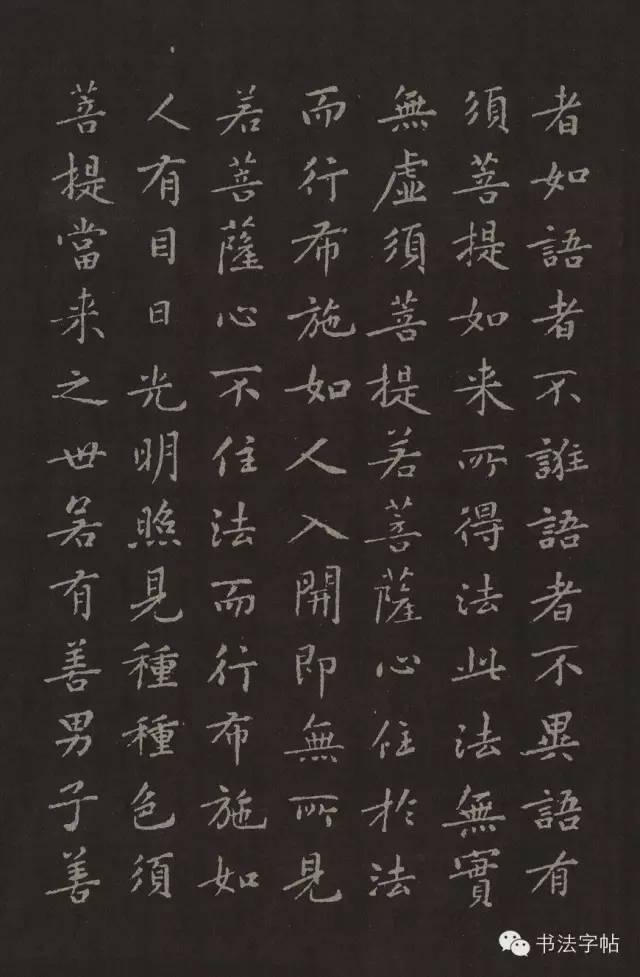 者如語者不誰語者不異語有
須菩提如来所得法此法無實
無虛須菩提若菩薩心住於法
而行布施如人入開即無所見
若菩薩心不住法而行布施如
人有目日光明照見種種色須
菩提當来之世若有善男子善
书法字帖